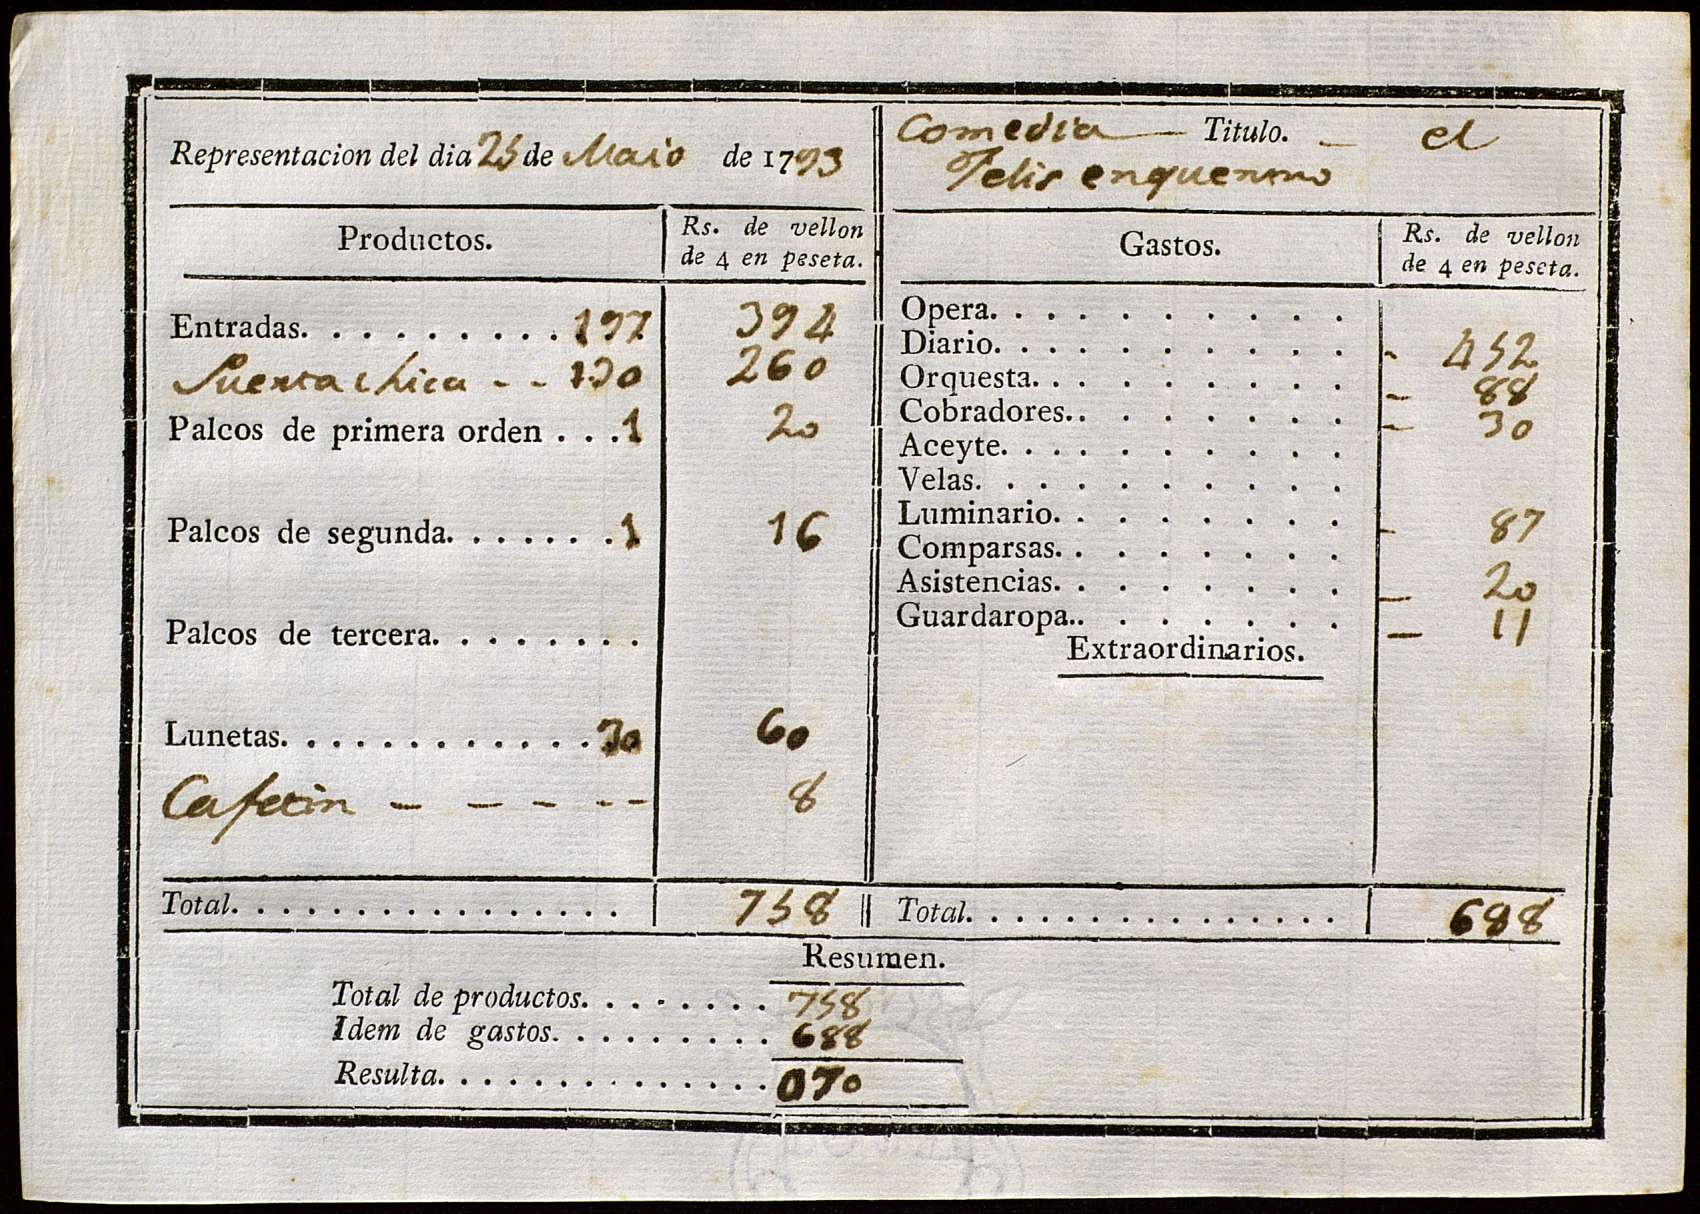 Representacion del dia 25 de Maio de 1793
Comedia Titulo. el
Felis enquentro
Productos.
Rs. de vellon
de 4 en peseta.
Entradas. 197 394
Puerta chica 130 260
Palcos de primera orden 1 20
Palcos de segunda. 1 16
Palcos de tercera.
Lunetas. 30 60
Cafetin 8
Total. 758
Gastos.
Rs. de vellon
de 4 en peseta.
Opera.
Diario. 452
Orquesta. 88
Cobradores. 30
Aceyte.
Velas.
Luminario. 87
Comparsas.
Asistencias. 20
Guardaropa. 11
Extraordinarios.
Total. 688
Resumen.
Total de productos. 758
Idem de gastos. 688
Resulta. 070